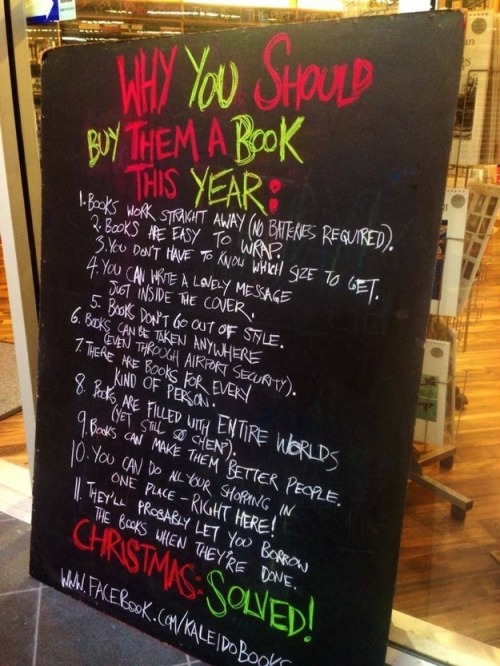 WHY YOU SHOULD
BUY THEM A BOOK
THIS YEAR:
1. BOOKS WORK STRAIGHT AWAY (NO BATTERIES REQUIRED).
2. BOOKS ARE EASY TO WRAP.
3. YOU DON'T HAVE TO KNOW WHICH SIZE TO GET.
4. YOU CAN WRITE A LOVELY MESSAGE
JUST INSIDE THE COVER.
5. BOOKS DON'T GO OUT OF STYLE.
6. BOOKS CAN BE TAKEN ANYWHERE
(EVEN THROUGH AIRPORT SECURITY).
7. THERE ARE BOOKS FOR EVERY
KIND OF PERSON.
8. BOOKS ARE FILLED WITH ENTIRE WORLDS
(YET STILL SO CHEAP).
9. BOOKS CAN MAKE THEM BETTER PEOPLE.
10. YOU CAN DO ALL YOUR SHOPPING IN
ONE PLACE - RIGHT HERE!
11. THEY'LL PROBABLY LET YOU BORROW
THE BOOKS WHEN THEY'RE DONE.
CHRISTMAS: SOLVED!
WWW.FACEBOOK.COM/KALEIDOBOOKS